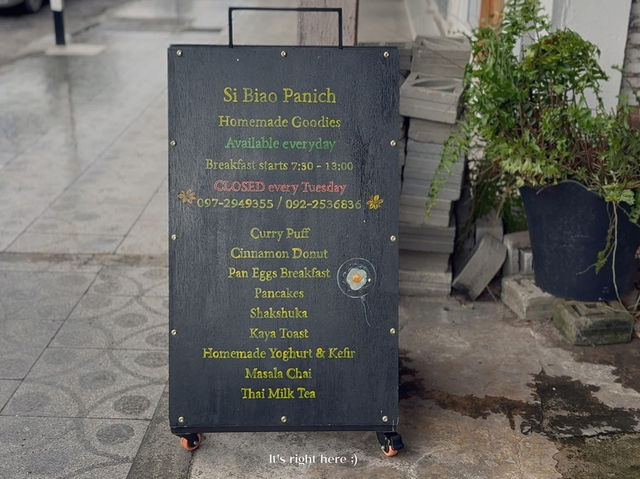 Si Biao Panich
Homemade Goodies
Available everyday
Breakfast starts 7:30 - 13:00
CLOSED every Tuesday
097-2949355 / 092-2536836
Curry Puff
Cinnamon Donut
Pan Eggs Breakfast
Pancakes
Shakshuka
Kaya Toast
Homemade Yoghurt & Kefir
Masala Chai
Thai Milk Tea
It's right here :)